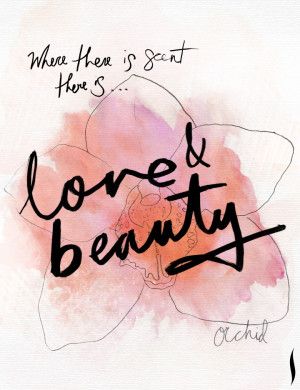 Where there is scent
there is...
love &
beauty
orchid